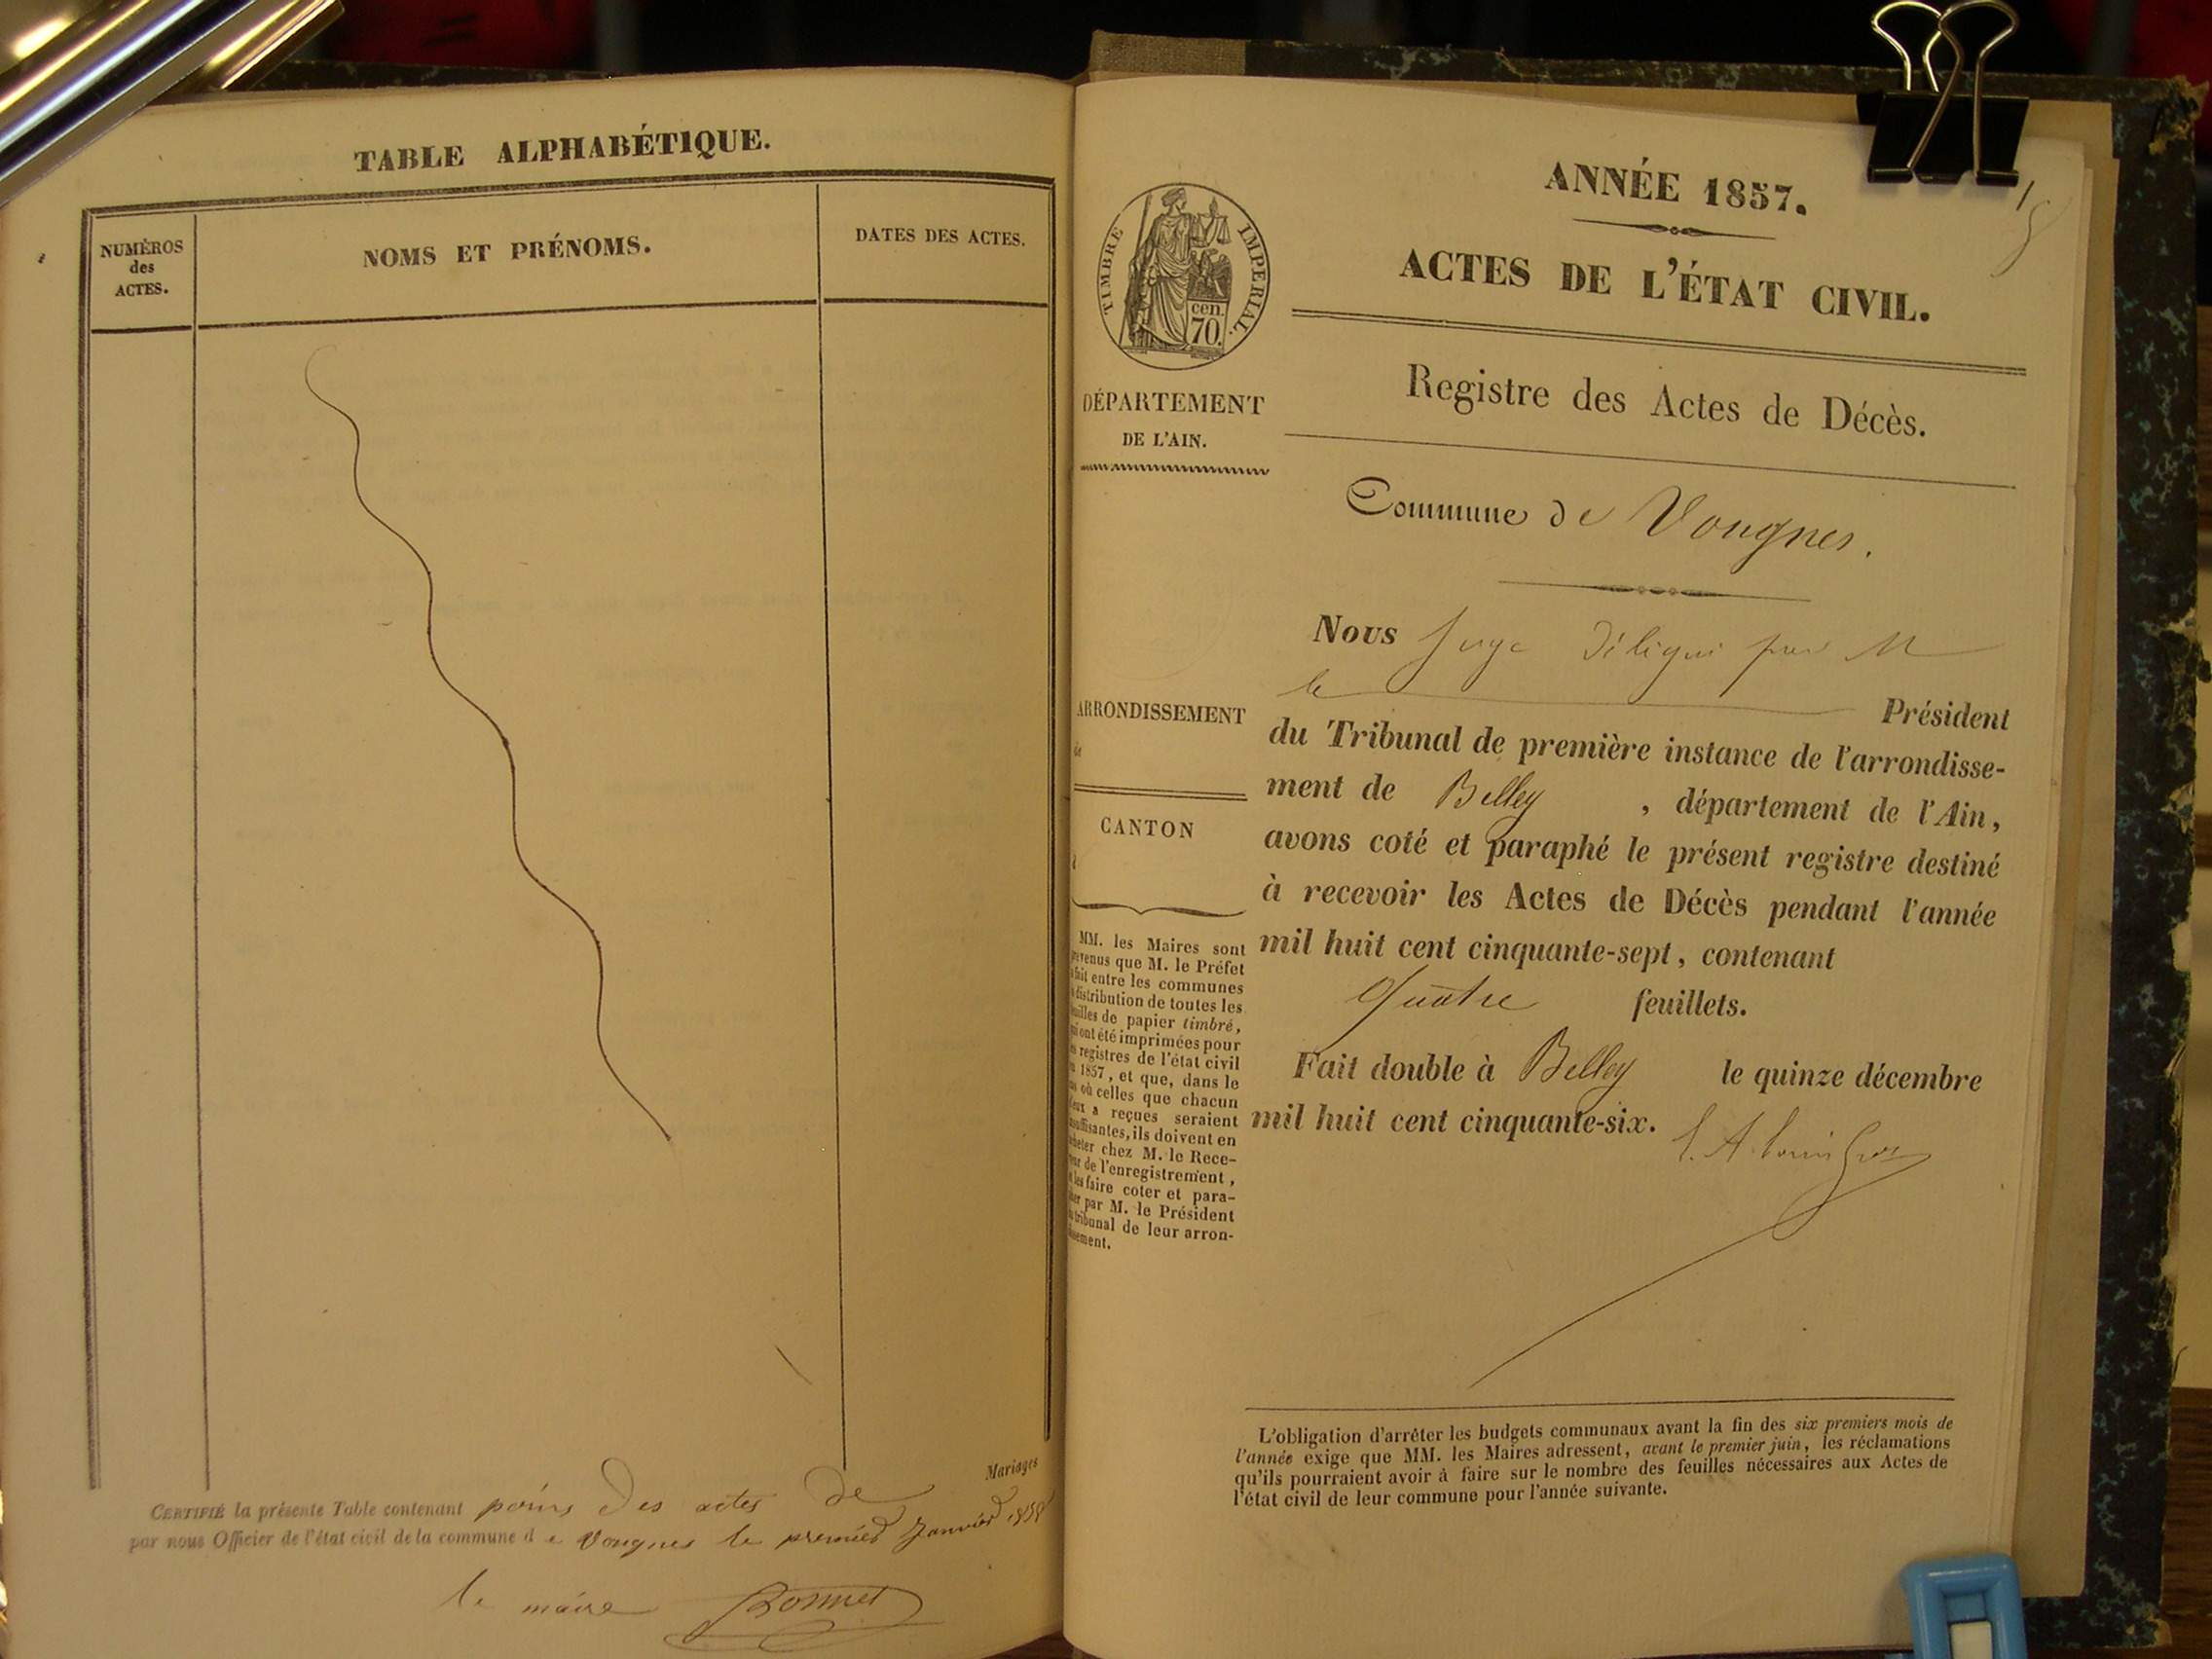 TABLE ALPHABÉTIQUE.
NUMÉROS
des
ACTES.
NOMS ET PRÉNOMS.
DATES DES ACTES.
Mariages
CERTIFIÉ la présente Table contenant des actes de
par nous Officier de l'état civil de la commune de Vongnes le premier Janvier 1858
le maire Bonnet
ANNÉE 1857.
ACTES DE L'ÉTAT CIVIL.
TIMBRE IMPERIAL.
cen.
70.
DÉPARTEMENT
DE L'AIN.
Registre des Actes de Décès.
Commune de Vongnes.
Nous Juge Délégué par M
le Président
ARRONDISSEMENT
de
CANTON
du Tribunal de première instance de l'arrondisse-
ment de Belley, département de l'Ain,
avons coté et paraphé le présent registre destiné
à recevoir les Actes de Décès pendant l'année
mil huit cent cinquante-sept, contenant
Quatre feuillets.
Fait double à Belley le quinze décembre
mil huit cent cinquante-six.
MM. les Maires sont
prévenus que M. le Préfet
a fait entre les communes
la distribution de toutes les
feuilles de papier timbré,
qui ont été imprimées pour
les registres de l'état civil
en 1857, et que, dans le
cas où celles que chacun
d'eux a reçues seraient
insuffisantes, ils doivent en
acheter chez M. le Rece-
veur de l'enregistrement,
et les faire coter et para-
pher par M. le Président
du tribunal de leur arron-
dissement.
L'obligation d'arrêter les budgets communaux avant la fin des six premiers mois de
l'année exige que MM. les Maires adressent, avant le premier juin, les réclamations
qu'ils pourraient avoir à faire sur le nombre des feuilles nécessaires aux Actes de
l'état civil de leur commune pour l'année suivante.